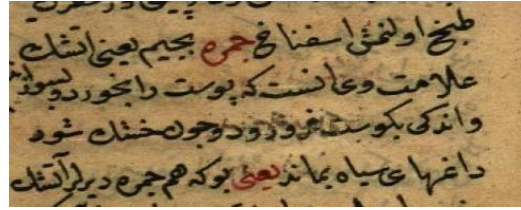 طبخ اولنمش اسفناخ جمره بجیم یعنی اتشك
علامت وی انست که پوست را بخورد و بسوزاند
واندکی بکوشت فرو رود و چون خشك شود
داغهای سیاه بماند یعنی بو که هم جمره دیرلر آتشك